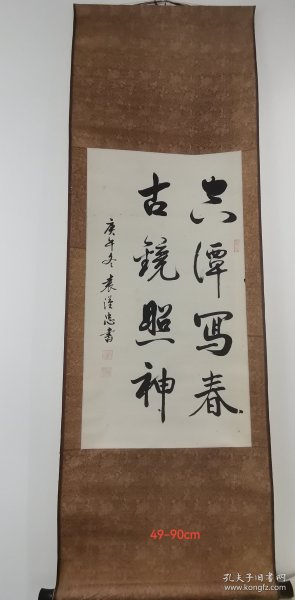 空潭写春
古镜照神
庚午冬袁汉忠书
49-90cm
孔夫子旧书网
www.kongfz.com